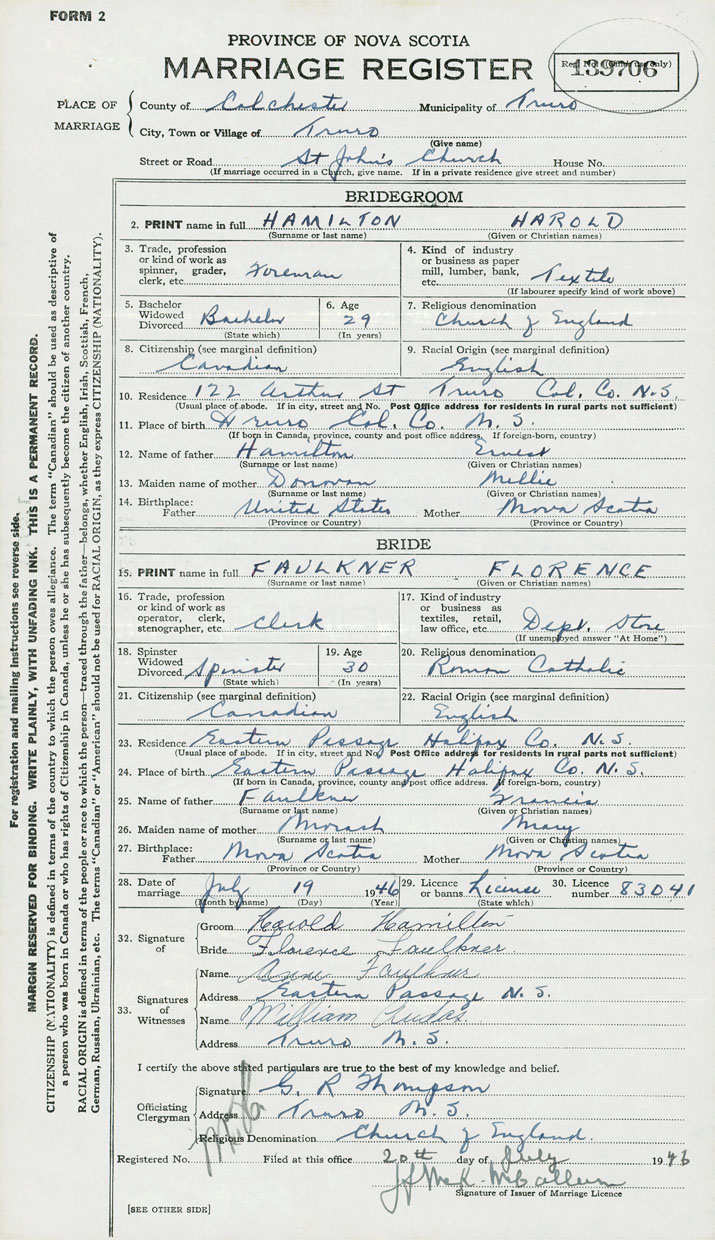 FORM 2
PROVINCE OF NOVA SCOTIA
MARRIAGE REGISTER
Reg. No. (Office use only)
139706
PLACE OF MARRIAGE
County of Colchester Municipality of Truro
City, Town or Village of Truro
(Give name)
Street or Road St John's Church House No.
(If marriage occurred in a Church, give name. If in a private residence give street and number)
BRIDEGROOM
2. PRINT name in full HAMILTON HAROLD
(Surname or last name) (Given or Christian names)
3. Trade, profession or kind of work as spinner, grader, clerk, etc. Foreman
4. Kind of industry or business as paper mill, lumber, bank, etc. Textile
(If labourer specify kind of work above)
5. Bachelor Widowed Divorced Bachelor
(State which)
6. Age 29
(In years)
7. Religious denomination
Church of England
8. Citizenship (see marginal definition)
Canadian
9. Racial Origin (see marginal definition)
English
10. Residence 122 Arthur St Truro Col. Co. N.S.
(Usual place of abode. If in city, street and No. Post Office address for residents in rural parts not sufficient)
11. Place of birth Truro Col. Co. N.S.
(If born in Canada, province, county and post office address. If foreign-born, country)
12. Name of father Hamilton Ernest
(Surname or last name) (Given or Christian names)
13. Maiden name of mother Donovan Millie
(Surname or last name) (Given or Christian names)
14. Birthplace: Father United States Mother Nova Scotia
(Province or Country) (Province or Country)
BRIDE
15. PRINT name in full FAULKNER FLORENCE
(Surname or last name) (Given or Christian names)
16. Trade, profession or kind of work as operator, clerk, stenographer, etc Clerk
17. Kind of industry or business as textiles, retail, law office, etc. Dept. Store
(If unemployed answer "At Home")
18. Spinster Widowed Divorced Spinster
(State which)
19. Age 30
(In years)
20. Religious denomination
Roman Catholic
21. Citizenship (see marginal definition)
Canadian
22. Racial Origin (see marginal definition)
English
23. Residence Eastern Passage Halifax Co. N.S.
(Usual place of abode. If in city, street and No. Post Office address for residents in rural parts not sufficient)
24. Place of birth Eastern Passage Halifax Co. N.S.
(If born in Canada, province, county and post office address. If foreign-born, country)
25. Name of father Faulkner Francis
(Surname or last name) (Given or Christian names)
26. Maiden name of mother Morash Mary
(Surname or last name) (Given or Christian names)
27. Birthplace: Father Nova Scotia Mother Nova Scotia
(Province or Country) (Province or Country)
28. Date of marriage July 19 1946
(Month by name) (Day) (Year)
29. Licence or banns License
(State which)
30. Licence number 83041
32. Signature of
Groom Harold Hamilton
Bride Florence Faulkner
33. Signatures of Witnesses
Name Anne Faulkner
Address Eastern Passage N.S.
Name William Audas
Address Truro N.S.
I certify the above stated particulars are true to the best of my knowledge and belief.
Officiating Clergyman
Signature G. R Thompson
Address Truro N.S.
Religious Denomination Church of England.
Registered No. Filed at this office 20th day of July 1946
Signature of Issuer of Marriage Licence
[SEE OTHER SIDE]
For registration and mailing instructions see reverse side.
MARGIN RESERVED FOR BINDING. WRITE PLAINLY, WITH UNFADING INK. THIS IS A PERMANENT RECORD.
CITIZENSHIP (NATIONALITY) is defined in terms of the country to which the person owes allegiance. The term "Canadian" should be used as descriptive of
a person who was born in Canada or who has rights of Citizenship in Canada, unless he or she has subsequently become the citizen of another country.
RACIAL ORIGIN is defined in terms of the people or race to which the person—traced through the father—belongs, whether English, Irish, Scottish, French,
German, Russian, Ukrainian, etc. The terms "Canadian" or "American" should not be used for RACIAL ORIGIN, as they express CITIZENSHIP (NATIONALITY).